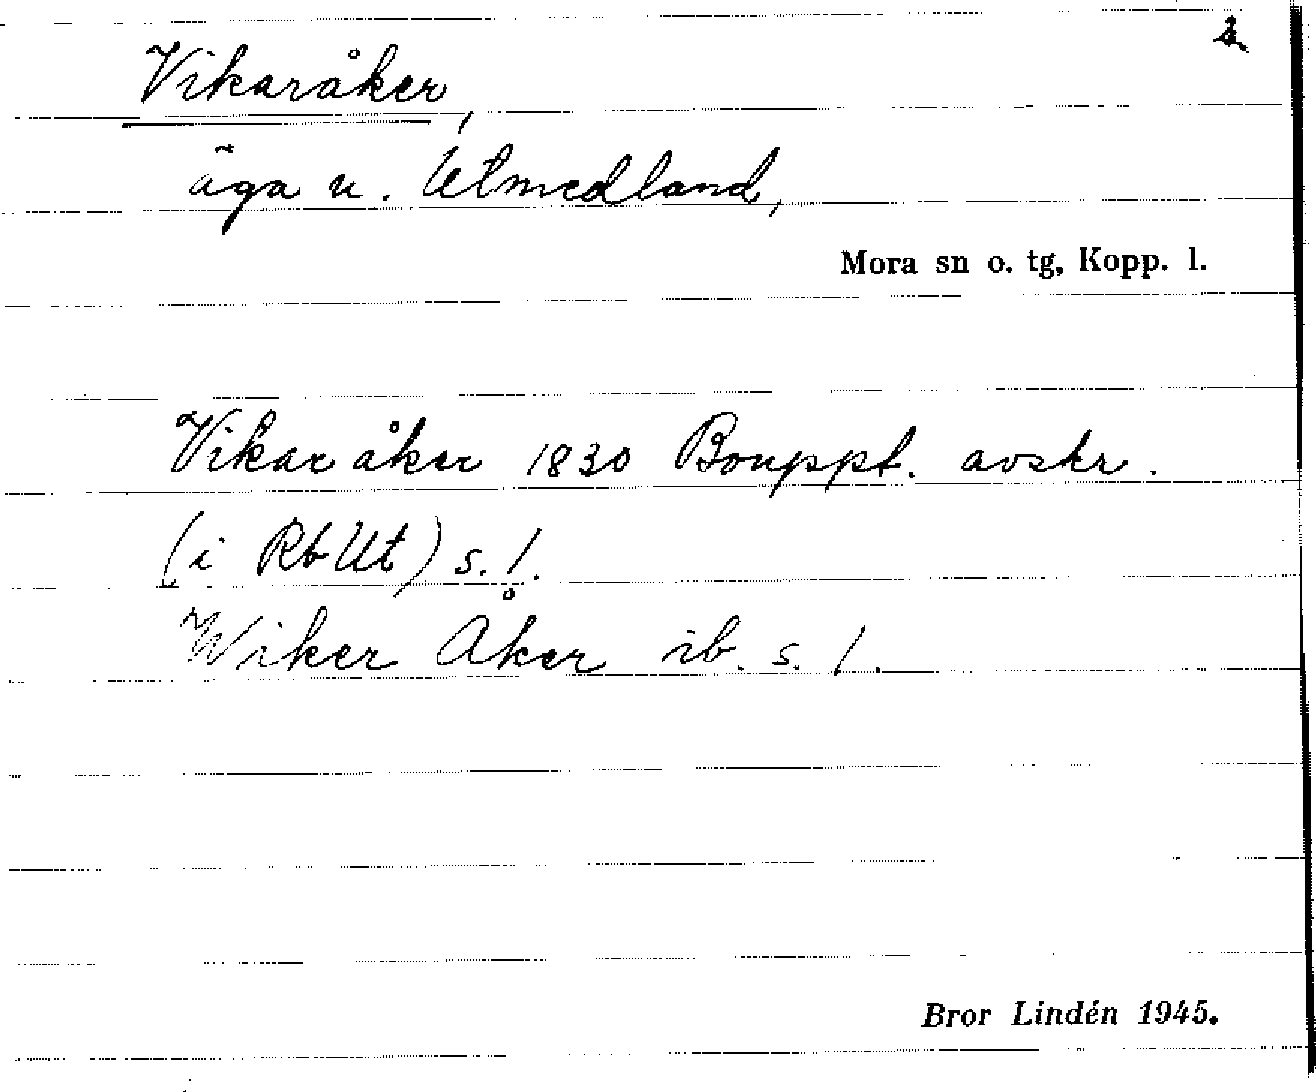 Vikaråker,
äga u. Utmedland,
Mora sn o. tg, Kopp. l.
Vikaråker 1830 Bouppt. avskr.
(i RbUt) s. 1.
Wiker Åker ib. s. 1.
Bror Lindén 1945.